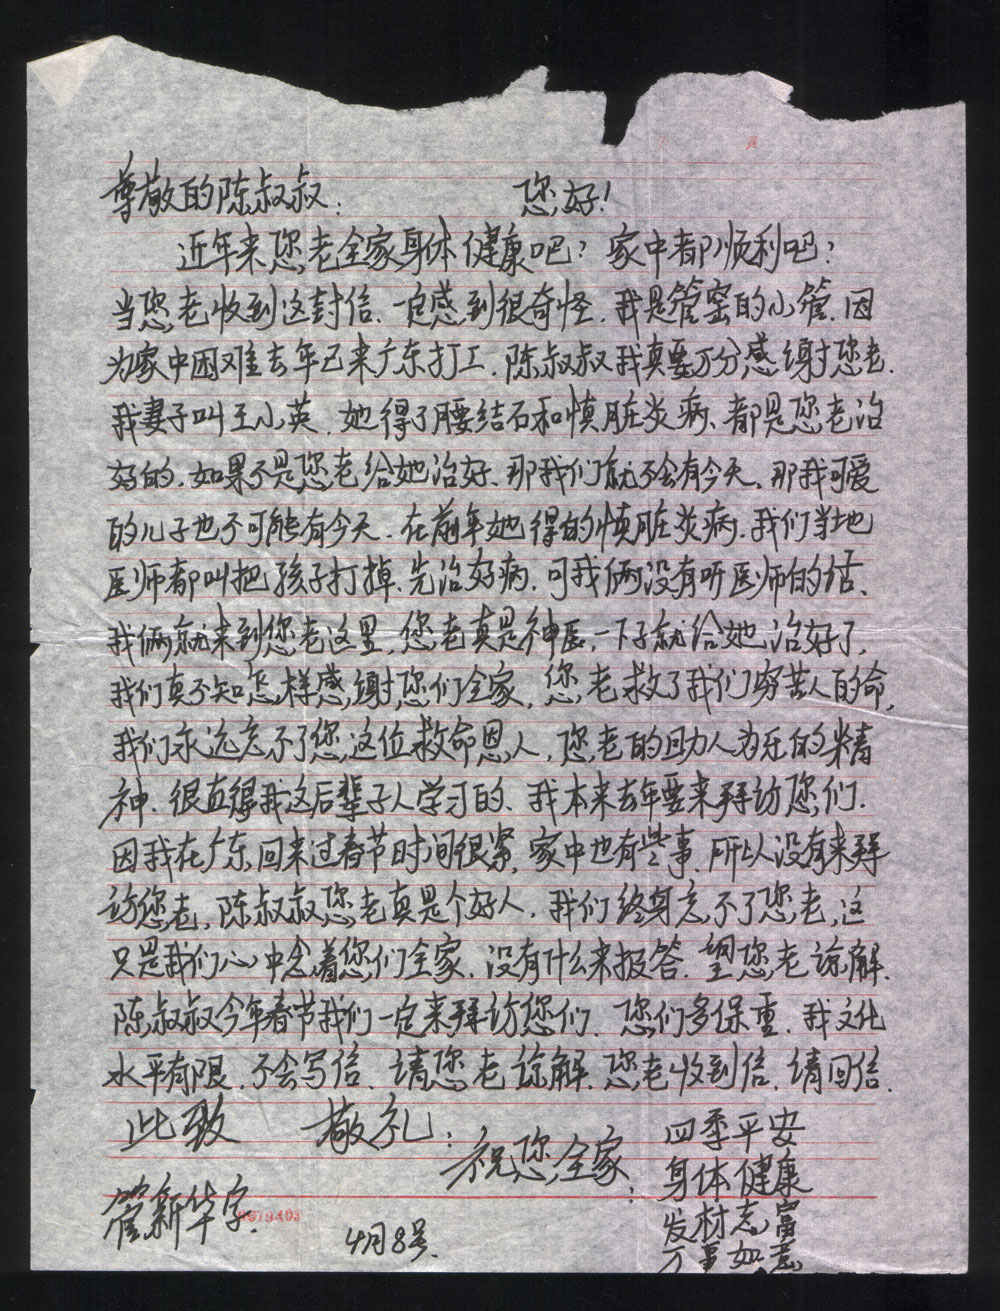 尊敬的陈叔叔： 您好！
近年来您老全家身体健康吧？家中都顺利吧？
当您老收到这封信.一定感到很奇怪.我是管窑的小管.因
为家中困难去年已来广东打工.陈叔叔我真要万分感谢您老.
我妻子叫王小英.她得了腰结石和慎脏炎病、都是您老治
好的.如果不是您老给她治好、那我们就不会有今天、那我可爱
的儿子也不可能有今天.在前年她得的慎脏炎病.我们当地
医师都叫把孩子打掉.先治好病.可我俩没有听医师的话、
我俩就来到您老这里,您老真是神医,一下子就给她治好了,
我们真不知怎样感谢您们全家,您老救了我们穷苦人的命,
我们永远忘不了您这位救命恩人,您老的助人为乐的精
神.很值得我这后辈子人学习的、我本来去年要来拜访您们.
因我在广东,回来过春节时间很紧,家中也有些事.所以没有来拜
访您老,陈叔叔,您老真是个好人.我们终身忘不了您老,这
只是我们心中念着您们全家.没有什么来报答.望您老谅解.
陈叔叔今年春节我们一定来拜访您们.您们多保重.我文化
水平有限.不会写信.请您老谅解.您老收到信.请回信.
此致 敬礼：
祝您全家：
四季平安
身体健康
发材志富
万事如意
管新华字.
4月8号.